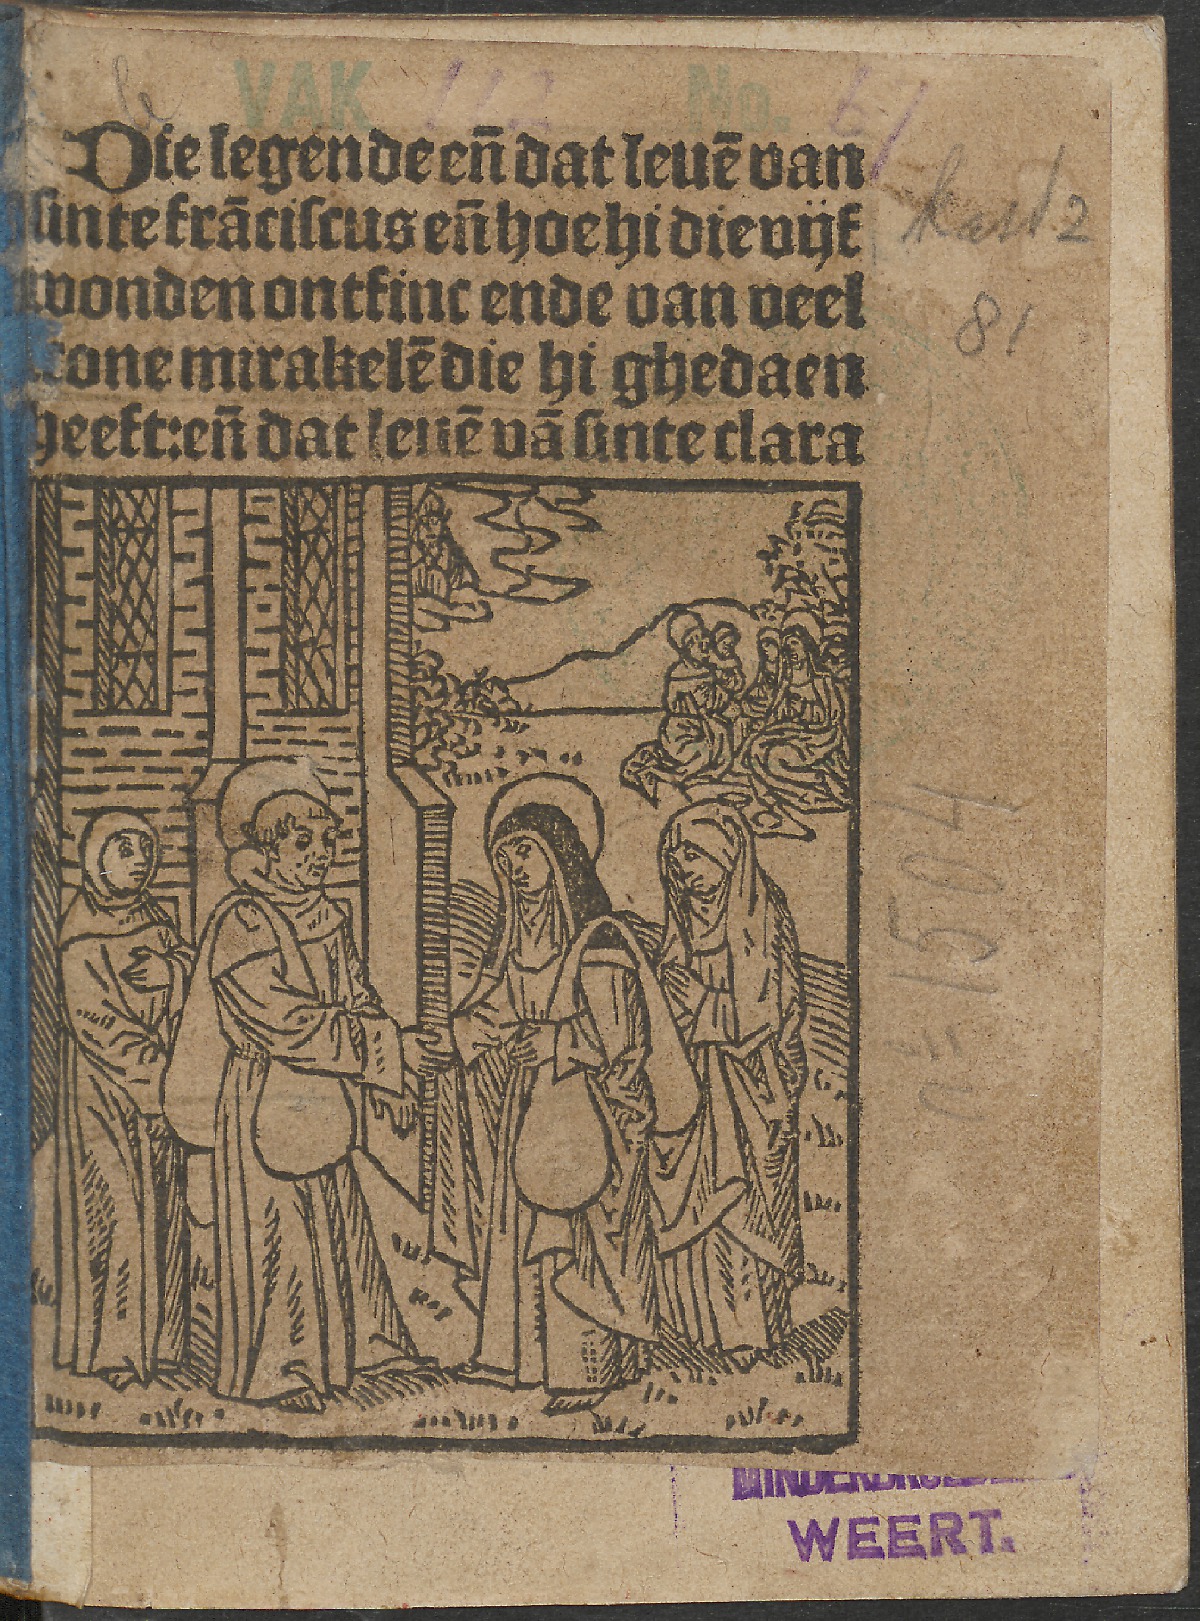 VAK 112 No. 61
Die legende en̄ dat leuē van
sinte frāciscus en̄ hoe hi die vijf
wonden ontfinc ende van veel
scone mirakelē die hi ghedaen
heeft: en̄ dat leuē vā sinte clara
Kast 2
81
n = 1504
WEERT.